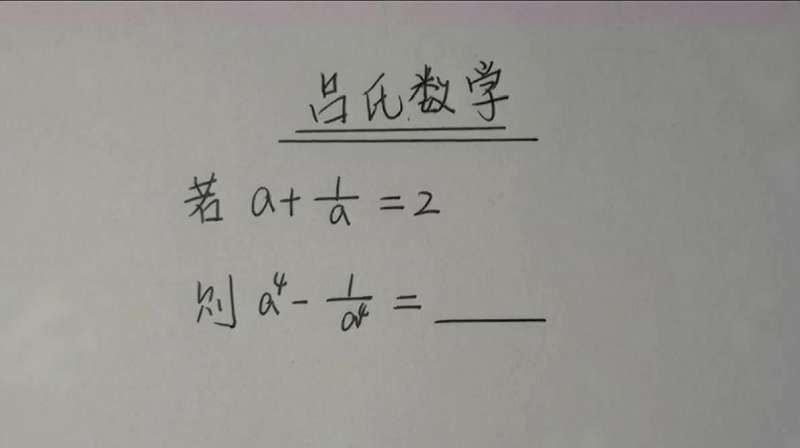 吕氏数学
若 a+1/a=2
则 a⁴-1/a⁴=____